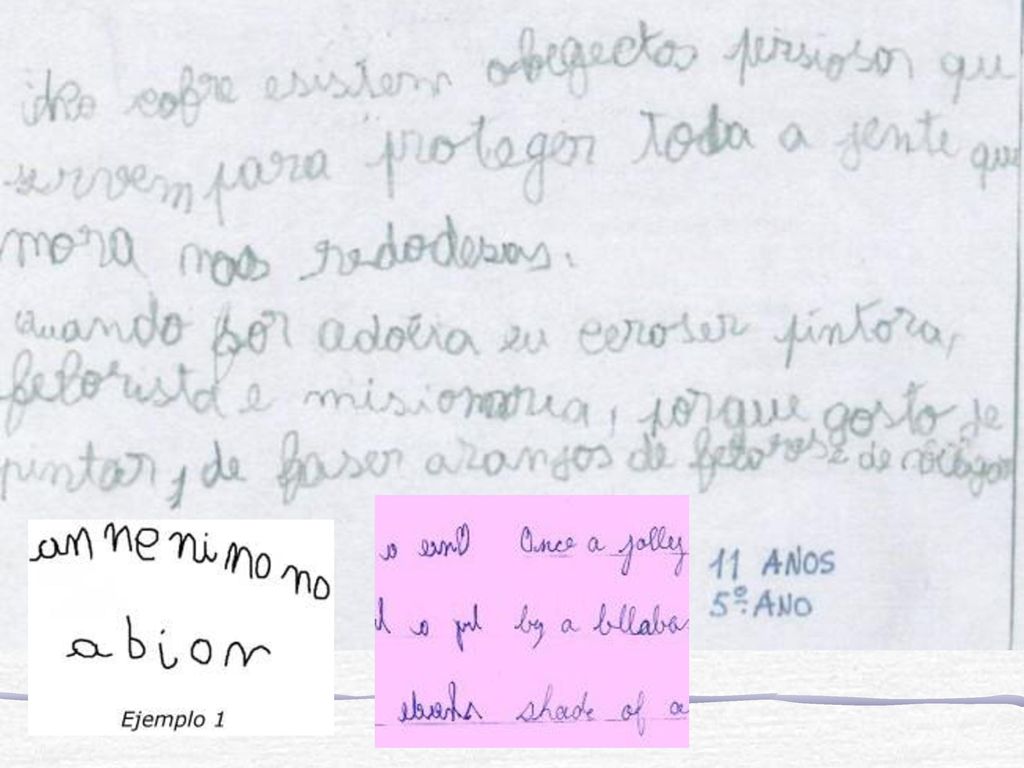 cofre esistem obegectos persiosos que
servem para proteger toda a jente que
mora nas redodesas.
Quando for adoéia eu ceroser pintora,
felorista e misionaria, porque gosto de
pintar, de faser aranjos de felores e de
annenimono no
abion
Ejemplo 1
Once a jolley
by a bllaba
shade of a
11 ANOS
5º ANO